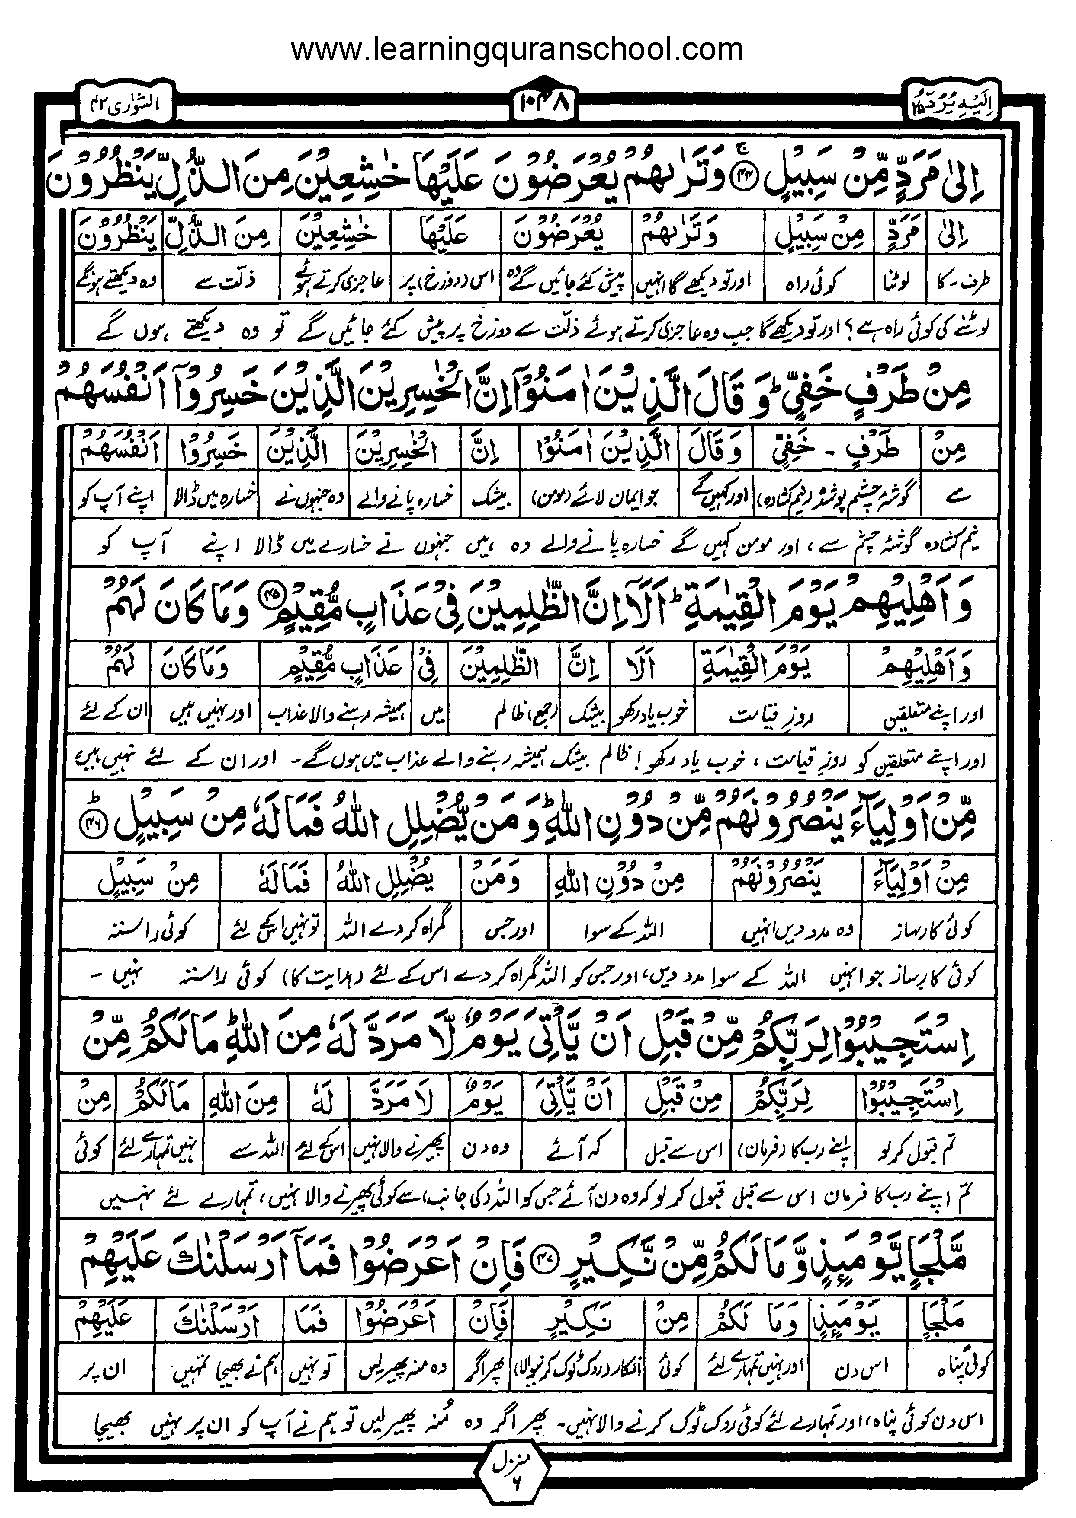 www.learningquranschool.com
الشورٰی ۴۲
۱۰۴۸
اِلَیْهِ یُرَدُّ ۲۵
اِلٰى مَرَدٍّ مِّنْ سَبِیْلٍ ﴿۴۴﴾ وَ تَرٰىهُمْ یُعْرَضُوْنَ عَلَیْهَا خٰشِعِیْنَ مِنَ الذُّلِّ یَنْظُرُوْنَ
اِلٰى مَرَدٍّ مِنْ سَبِیْلٍ وَتَرٰىهُمْ یُعْرَضُوْنَ عَلَیْهَا خٰشِعِیْنَ مِنَ الذُّلِّ یَنْظُرُوْنَ
طرف۔ کا لوٹنا کوئی راہ اور تو دیکھے گا انہیں پیش کئے جائیں گے وہ اس (دوزخ) پر عاجزی کرتے ہوئے ذلت سے وہ دیکھتے ہونگے
لوٹنے کی کوئی راہ ہے؟ اور تو دیکھے گا جب وہ عاجزی کرتے ہوئے ذلت سے دوزخ پر پیش کئے جائیں گے تو وہ دیکھتے ہوں گے
مِنْ طَرْفٍ خَفِیٍّ ؕ وَ قَالَ الَّذِیْنَ اٰمَنُوْۤا اِنَّ الْخٰسِرِیْنَ الَّذِیْنَ خَسِرُوْۤا اَنْفُسَهُمْ
مِنْ طَرْفٍ - خَفِیٍّ وَ قَالَ الَّذِیْنَ اٰمَنُوْا اِنَّ الْخٰسِرِیْنَ الَّذِیْنَ خَسِرُوْا اَنْفُسَهُمْ
سے گوشۂ چشم پوشیدہ (نیم کشادہ) اور کہیں گے جو ایمان لائے (مومن) بیشک خسارہ پانے والے وہ جنہوں نے خسارہ میں ڈالا اپنے آپ کو
نیم کشادہ گوشۂ چشم سے، اور مومن کہیں گے خسارہ پانے والے وہ ہیں جنہوں نے خسارے میں ڈالا اپنے آپ کو
وَ اَهْلِیْهِمْ یَوْمَ الْقِیٰمَةِ ؕ اَلَاۤ اِنَّ الظّٰلِمِیْنَ فِیْ عَذَابٍ مُّقِیْمٍ ﴿۴۵﴾ وَ مَا كَانَ لَهُمْ
وَ اَهْلِیْهِمْ یَوْمَ الْقِیٰمَةِ اَلَا اِنَّ الظّٰلِمِیْنَ فِیْ عَذَابٍ مُّقِیْمٍ وَمَا كَانَ لَهُمْ
اور اپنے متعلقین روزِ قیامت خوب یاد رکھو بیشک (جمع) ظالم میں ہمیشہ رہنے والا عذاب اور نہیں ہیں ان کے لئے
اور اپنے متعلقین کو روزِ قیامت، خوب یاد رکھو! ظالم بیشک ہمیشہ رہنے والے عذاب میں ہوں گے۔ اور ان کے لئے نہیں ہیں
مِّنْ اَوْلِیَآءَ یَنْصُرُوْنَهُمْ مِّنْ دُوْنِ اللّٰهِ ؕ وَ مَنْ یُّضْلِلِ اللّٰهُ فَمَا لَهٗ مِنْ سَبِیْلٍ ﴿۴۶﴾ؕ
مِنْ اَوْلِیَآءَ یَنْصُرُوْنَهُمْ مِنْ دُوْنِ اللّٰهِ وَمَنْ یُضْلِلِ اللّٰهُ فَمَا لَهٗ مِنْ سَبِیْلٍ
کوئی کارساز وہ مدد دیں انہیں اللہ کے سوا اور جس گمراہ کر دے اللہ تو نہیں اسکے لئے کوئی راستہ
کوئی کارساز جو انہیں اللہ کے سوا مدد دیں، اور جس کو اللہ گمراہ کر دے اس کے لئے (ہدایت کا) کوئی راستہ نہیں ۔
اِسْتَجِیْبُوْا لِرَبِّكُمْ مِّنْ قَبْلِ اَنْ یَّاْتِیَ یَوْمٌ لَّا مَرَدَّ لَهٗ مِنَ اللّٰهِ ؕ مَا لَكُمْ مِّنْ
اِسْتَجِیْبُوْا لِرَبِّكُمْ مِنْ قَبْلِ اَنْ یَّاْتِیَ یَوْمٌ لَا مَرَدَّ لَهٗ مِنَ اللّٰهِ مَا لَكُمْ مِنْ
تم قبول کر لو اپنے رب کا (فرمان) اس سے قبل کہ آئے وہ دن پھیرنے والا نہیں اس کے لئے اللہ سے نہیں تمہارے لئے کوئی
تم اپنے رب کا فرمان اس سے قبل قبول کر لو کہ وہ دن آئے جس کو اللہ (کی جانب) سے کوئی پھیرنے والا نہیں، تمہارے لئے نہیں
مَّلْجَاٍ یَّوْمَىِٕذٍ وَّ مَا لَكُمْ مِّنْ نَّكِیْرٍ ﴿۴۷﴾ فَاِنْ اَعْرَضُوْا فَمَاۤ اَرْسَلْنٰكَ عَلَیْهِمْ
مَلْجَاٍ یَوْمَىِٕذٍ وَمَا لَكُمْ مِنْ نَكِیْرٍ فَاِنْ اَعْرَضُوْا فَمَا اَرْسَلْنٰكَ عَلَیْهِمْ
کوئی پناہ اس دن اور نہیں تمہارے لئے کوئی انکار (روک ٹوک کرنیوالا) پھر اگر وہ منہ پھیر لیں تو نہیں ہم نے بھیجا تمہیں ان پر
اس دن کوئی پناہ، اور تمہارے لئے کوئی روک ٹوک کرنے والا نہیں۔ پھر اگر وہ مُنہ پھیر لیں تو ہم نے آپ کو ان پر نہیں بھیجا
منزل ۶